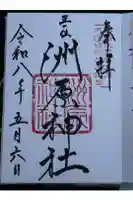 奉拝
正一位
洲原神社
令和八年五月六日